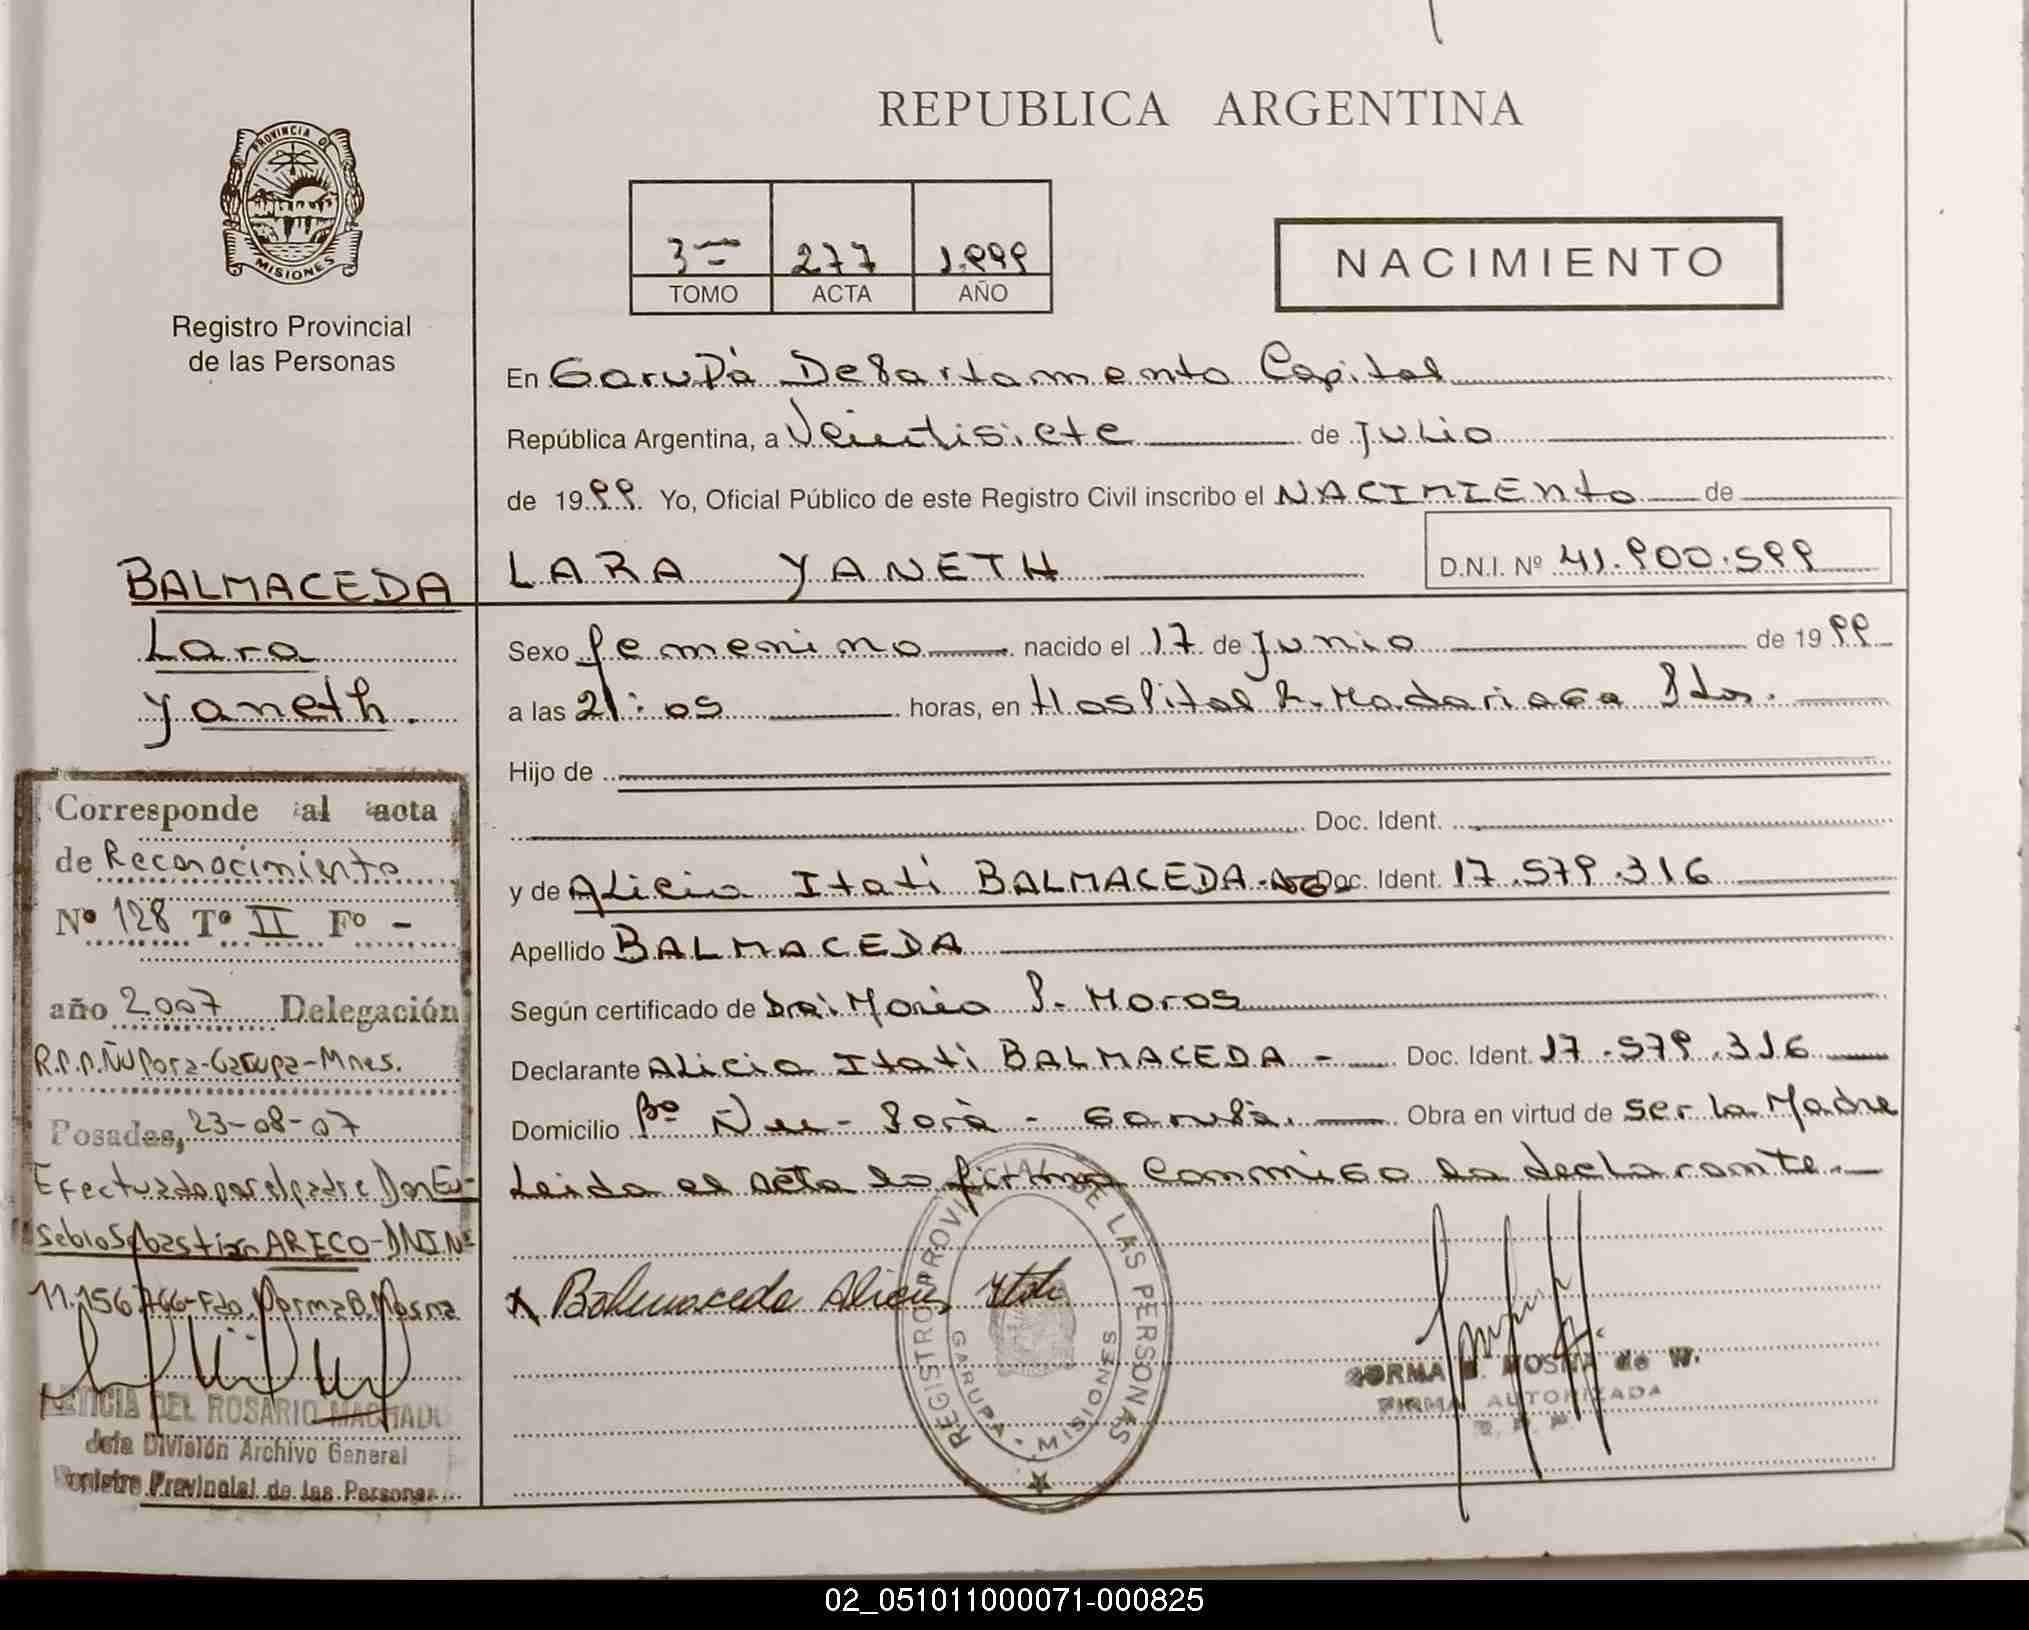 REPUBLICA ARGENTINA
PROVINCIA DE
MISIONES
Registro Provincial
de las Personas
3
277
1.999
TOMO
ACTA
AÑO
NACIMIENTO
En Garupá Departamento Capital
República Argentina, a Veintisiete de Julio
de 1999. Yo, Oficial Público de este Registro Civil inscribo el NACIMIENTO de
LARA YANETH
D.N.I. Nº 41.900.599
BALMACEDA
Lara
Yaneth.
Sexo femenino nacido el 17 de Junio de 1999
a las 21:05 horas, en Hospital R. Madariaga Pdas.
Hijo de
Doc. Ident.
y de Alicia Itatí BALMACEDA Doc. Ident. 17.579.316
Apellido BALMACEDA
Según certificado de Dra. María P. Moros
Declarante Alicia Itatí BALMACEDA - Doc. Ident. 17.579.316
Domicilio Bº Ñu - Porá - Garupá. Obra en virtud de ser la Madre
Leida el acta la firma conmigo la declarante.
X Balmaceda Alicia Itati
REGISTRO PROVINCIAL DE LAS PERSONAS
GARUPA - MISIONES
NORMA B. MOSNA de W.
FIRMA AUTORIZADA
R. P. P.
Corresponde al acta
de Reconocimiento
Nº 128 Tº II Fº -
año 2007 Delegación
R.P.P. Ñu Pora-Garupa-Mnes.
Posadas, 23-08-07
Efectuado por el padre Don Eu-
sebio Sebastián ARECO-DNI Nº
11.156.766-Fdo. Norma B. Mosna
LETICIA DEL ROSARIO MACHADO
Jefa División Archivo General
Registro Provincial de las Personas
02_051011000071-000825